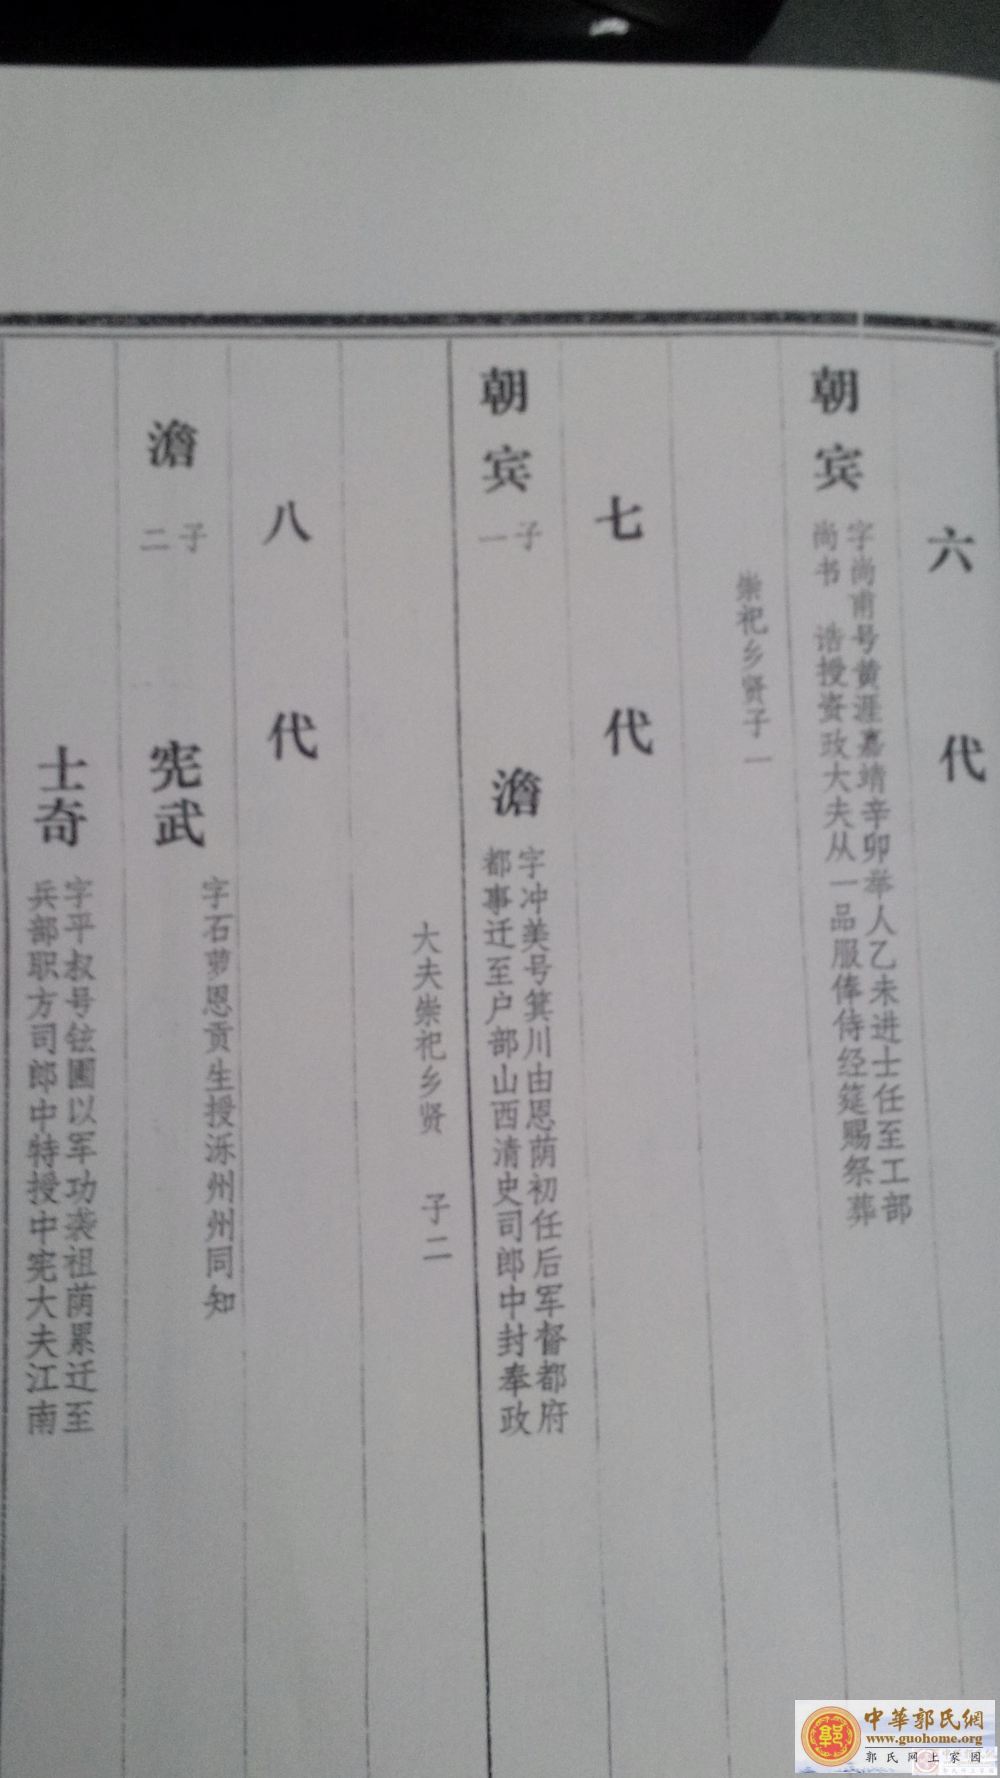 六代
朝宾
字尚甫号黄涯嘉靖辛卯举人乙未进士任至工部
尚书 诰授资政大夫从一品服俸侍经筵赐祭葬
崇祀乡贤子一
七代
朝宾
子一
澹
字冲美号箕川由恩荫初任后军督都府
都事迁至户部山西清史司郎中封奉政
大夫崇祀乡贤 子二
八代
澹
子二
宪武
字石萝恩贡生授泺州州同知
士奇
字平叔号铉圃以军功袭祖荫累迁至
兵部职方司郎中特授中宪大夫江南
中華郭氏網
www.guohome.org
郭氏网上家园